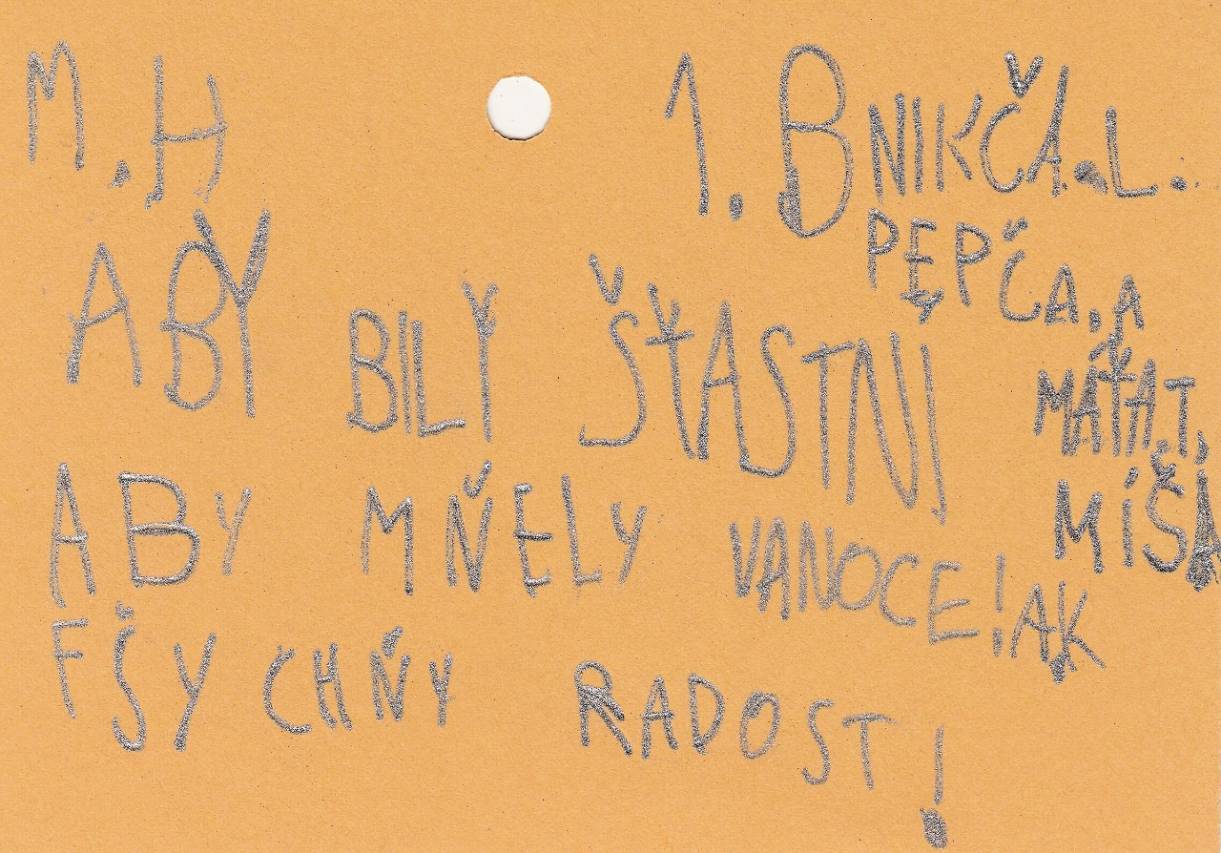 M.H 1. B NIKČA. L.
PEPČA, A
ABY BILY ŠŤASTNÍ
MÁŤA T,
ABY MŇELY VANOCE! AK
MÍŠA
FŠYCHŇY RADOST!